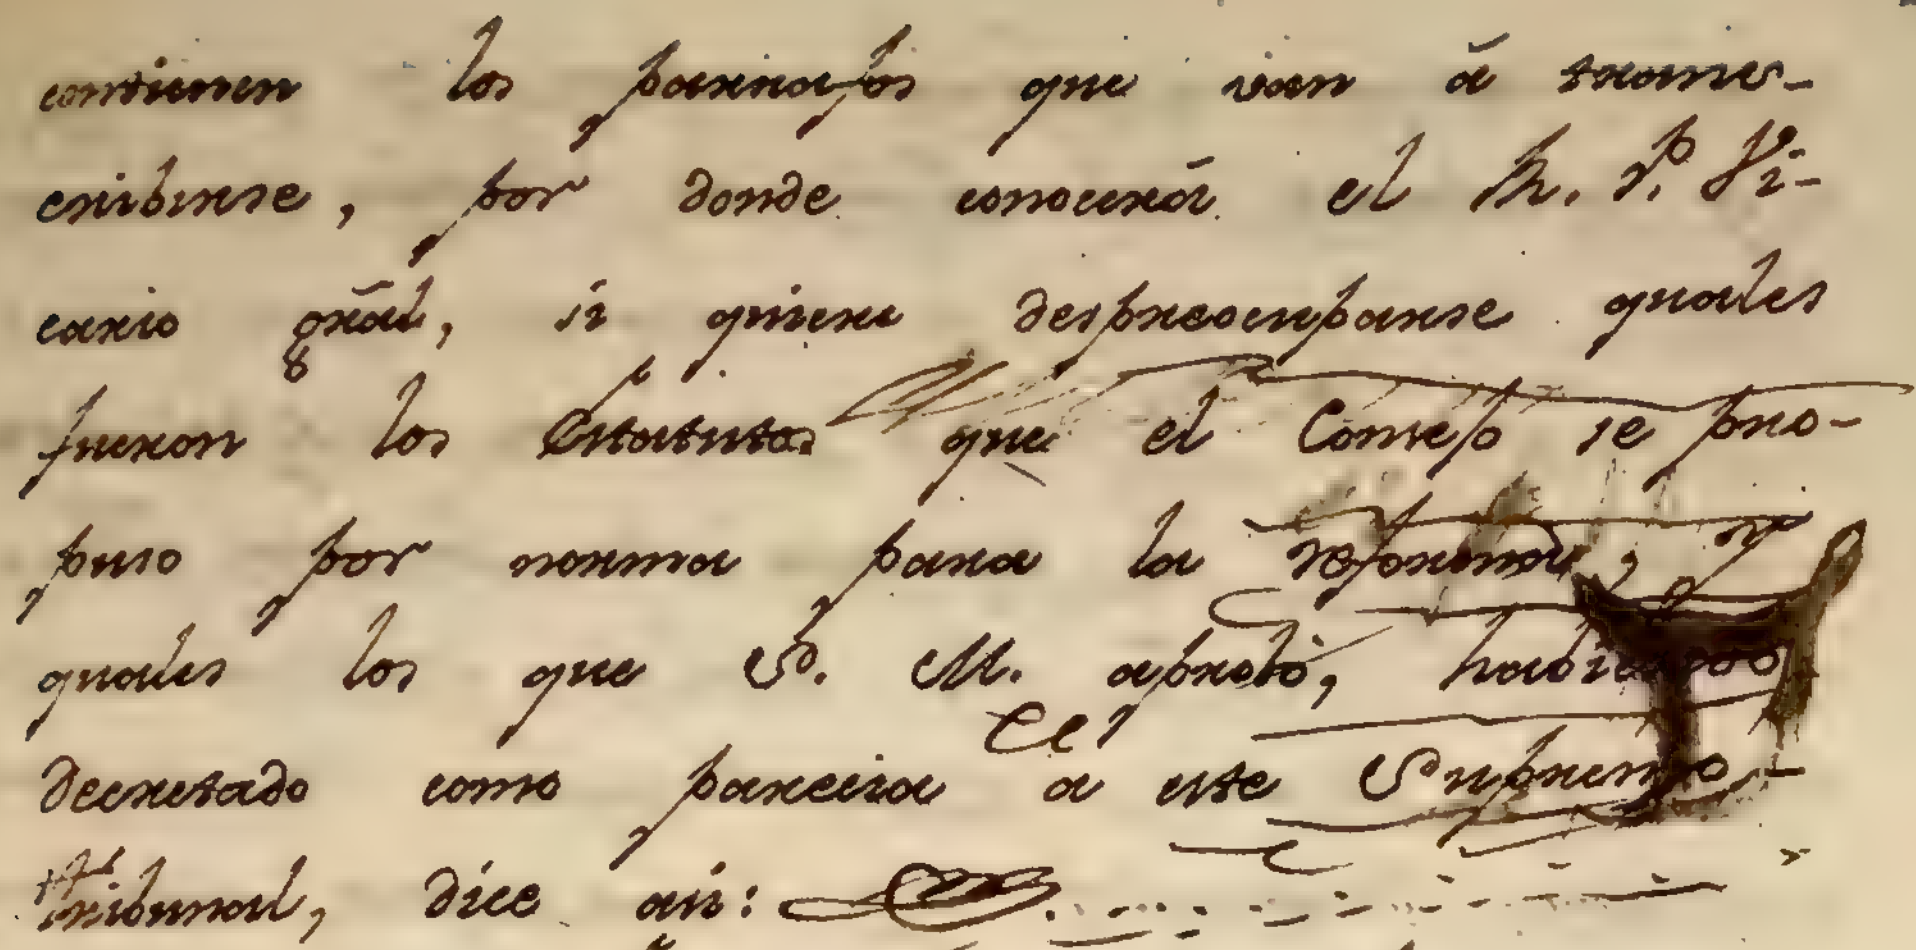 contienen los parrafos que van á trans-
cribirse, por donde conocerá el R. P. Vi-
cario grãl, si quiere despreocuparse quales
fueron los Estatutos que el Consejo se pro-
puso por norma para la reforma, y
quales los que S. M. aprobò, habiendo
decretado como parecia a este Supremo
tribunal, dice asi: